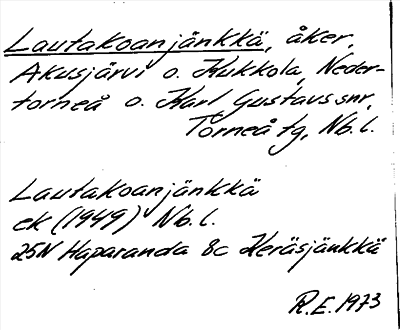 Lautakoanjänkkä, åker,
Akusjärvi o. Kukkola, Neder-
torneå o. Karl Gustavs snr,
Torneå tg, Nb. l.
Lautakoanjänkkä
ek (1949) Nb. l.
25N Haparanda 8c Keräsjänkkä
R.E. 1973